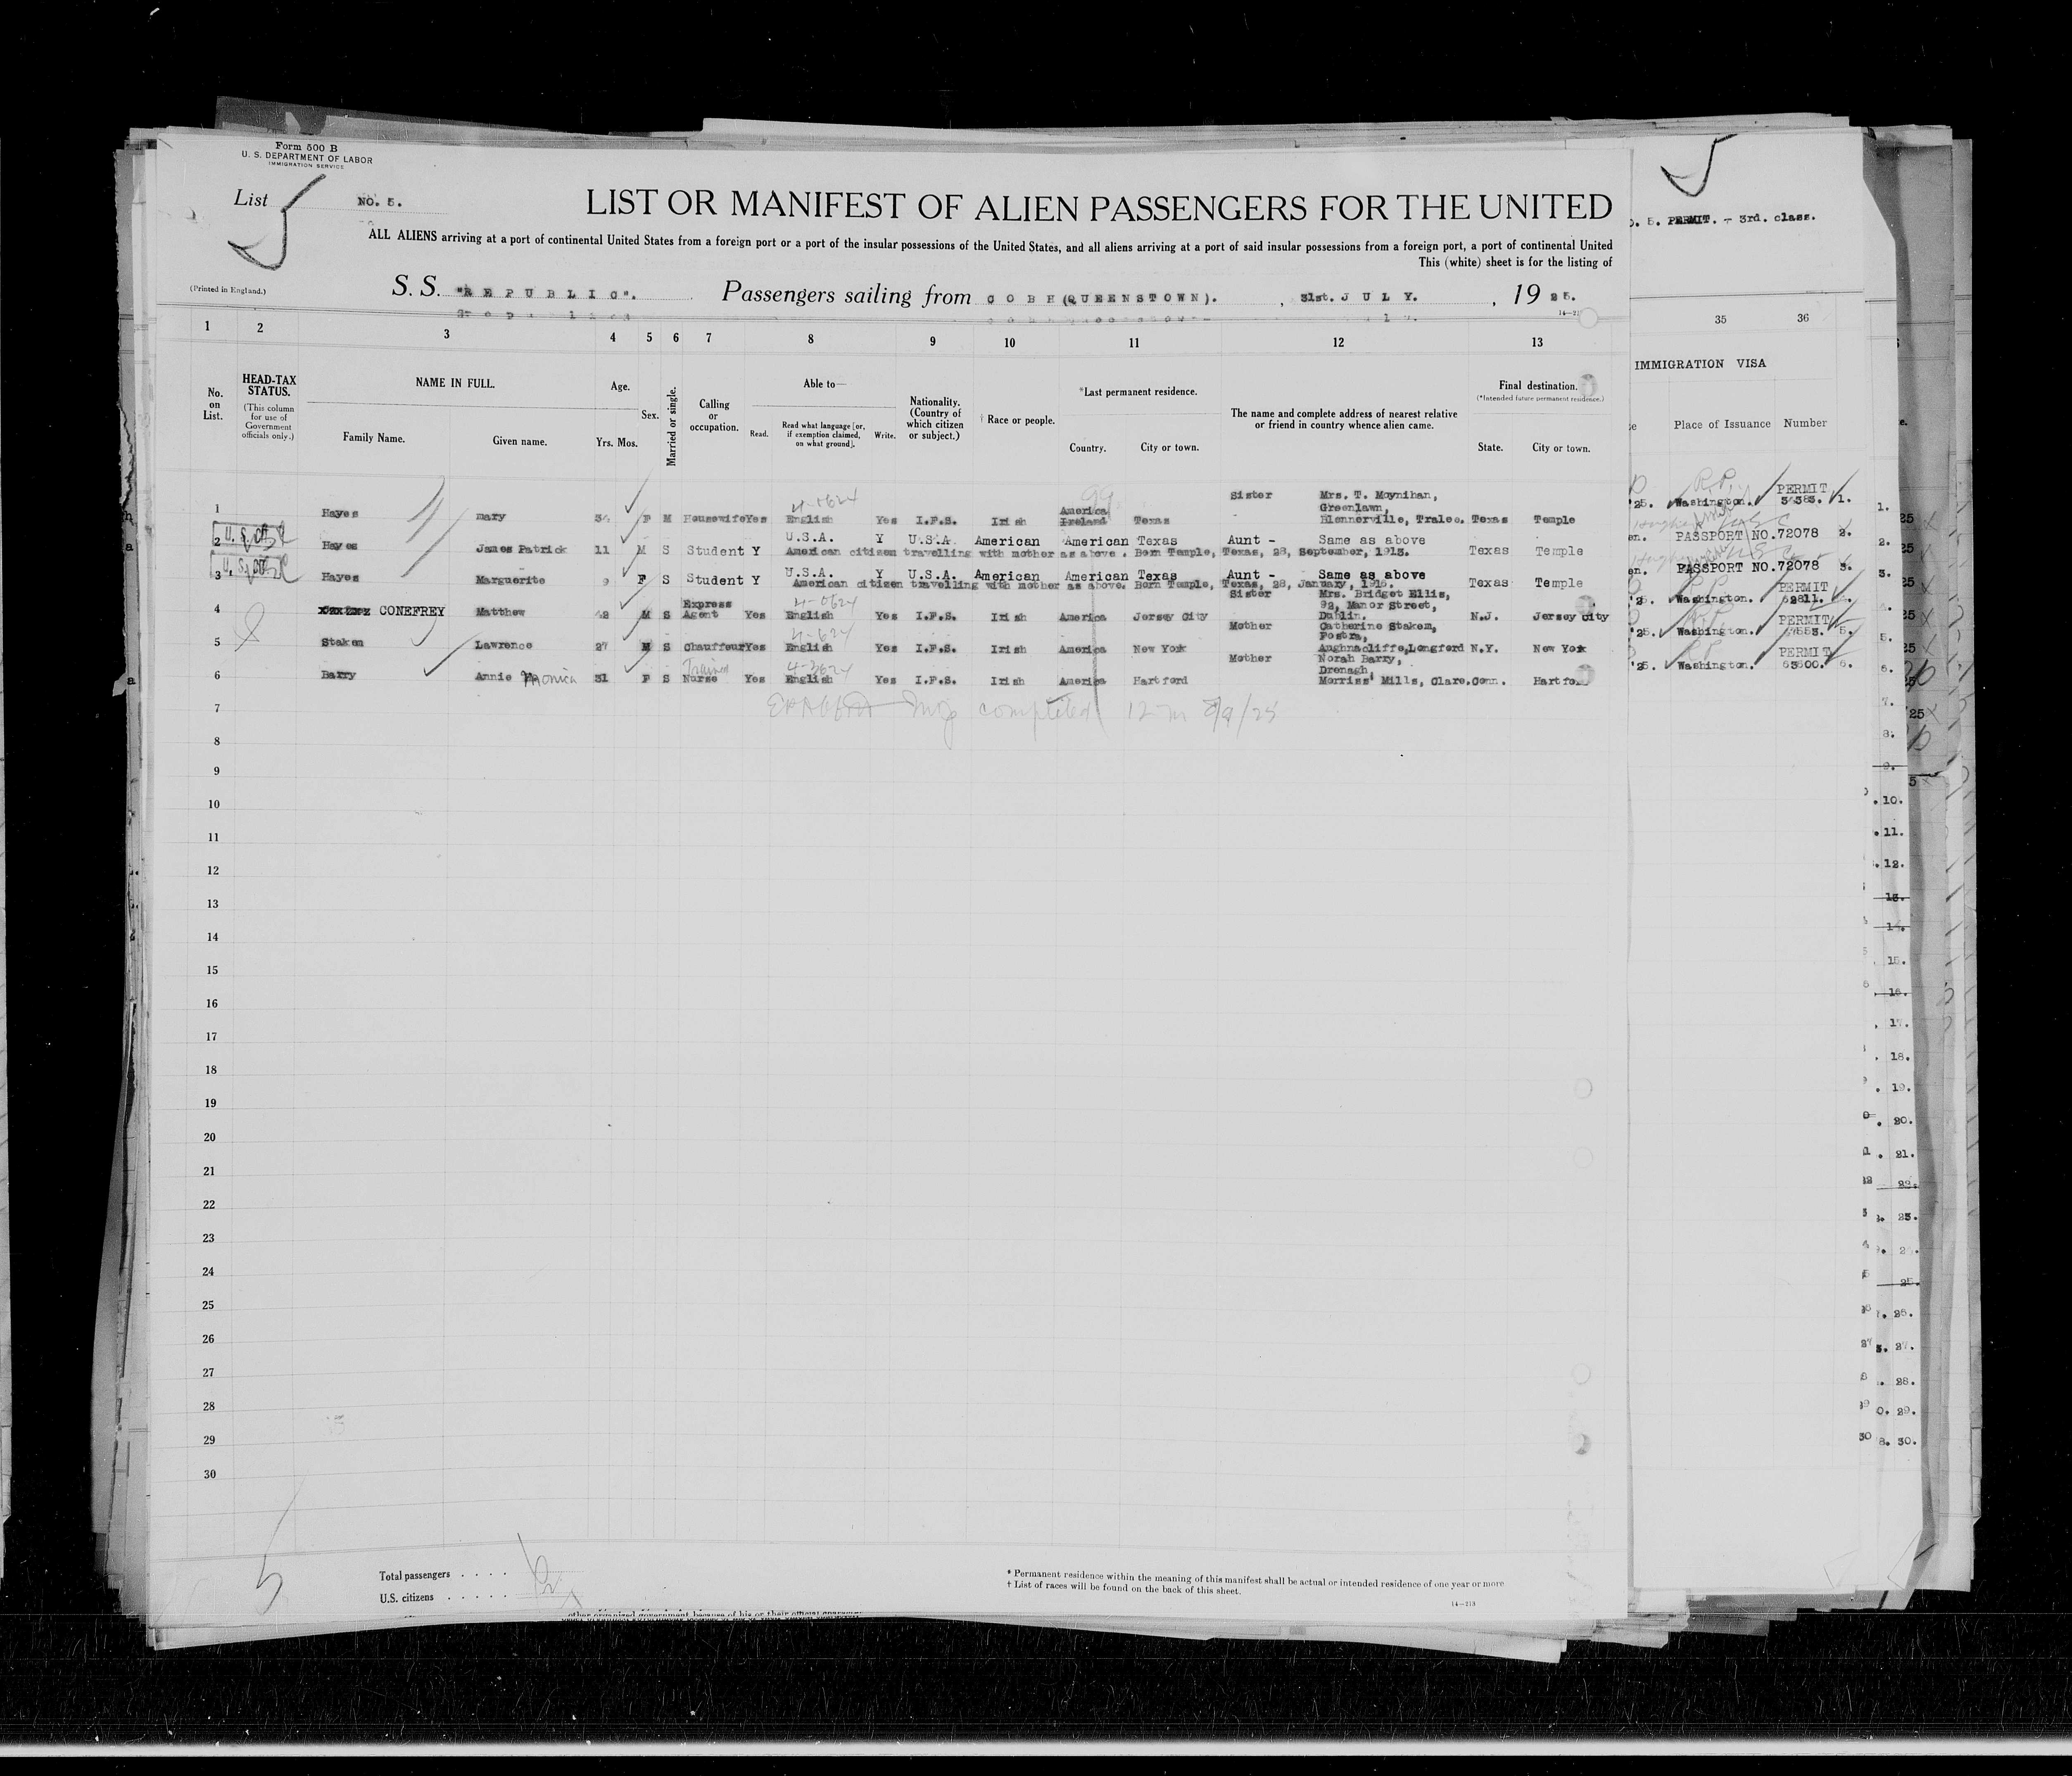 Form 500 B
U. S. DEPARTMENT OF LABOR
IMMIGRATION SERVICE
List NO. 5.
LIST OR MANIFEST OF ALIEN PASSENGERS FOR THE UNITED
5. PERMIT. - 3rd. class.
ALL ALIENS arriving at a port of continental United States from a foreign port or a port of the insular possessions of the United States, and all aliens arriving at a port of said insular possessions from a foreign port, a port of continental United
This (white) sheet is for the listing of
(Printed in England.)
S. S. "REPUBLIC". Passengers sailing from COBH(QUEENSTOWN). , 31st. JULY. , 19 25.
1 2 3 4 5 6 7 8 9 10 11 12 13 35 36
No. on List.
HEAD-TAX STATUS.
(This column for use of Government officials only.)
NAME IN FULL.
Family Name. Given name.
Age.
Yrs. Mos.
Sex.
Married or single.
Calling or occupation.
Able to—
Read. Read what language [or, if exemption claimed, on what ground]. Write.
Nationality. (Country of which citizen or subject.)
† Race or people.
*Last permanent residence.
Country. City or town.
The name and complete address of nearest relative or friend in country whence alien came.
Final destination.
(*Intended future permanent residence.)
State. City or town.
IMMIGRATION VISA
Place of Issuance Number
1 Hayes mary 34 F M Housewife Yes English Yes I.F.S. Irish America Ireland Texas Sister Mrs. T. Moynihan, Greenlawn, Blennerville, Tralee. Texas Temple '25. Washington. PERMIT 1.
2 Hayes James Patrick 11 M S Student Y U.S.A. Y U.S.A. American American Texas Aunt - Same as above Texas Temple PASSPORT NO.72078 2.
American citizen travelling with mother as above. Born Temple, Texas, 28, September, 1913.
3 Hayes Marguerite 9 F S Student Y U.S.A. Y U.S.A. American American Texas Aunt - Same as above Texas Temple PASSPORT NO.72078 3.
American citizen travelling with mother as above. Born Temple, Texas, 28, January, 1916.
4 CONEFREY Matthew 42 M S Express Agent Yes English Yes I.F.S. Irish America Jersey City Sister Mrs. Bridget Ellis, 92, Manor Street, Dublin. N.J. Jersey City Washington. PERMIT 62811.
5 Staken Lawrence 27 M S Chauffeur Yes English Yes I.F.S. Irish America New York Mother Catherine Stakem, Postra, Aughnacliffe, Longford N.Y. New York '25. Washington. PERMIT 5.
6 Barry Annie Monica 31 F S Trained Nurse Yes English Yes I.F.S. Irish America Hartford Mother Norah Barry, Drenagh, Morriss' Mills, Clare. Conn. Hartford '25. Washington. PERMIT 63600. 6.
7 completed
8
9
10
11
12
13
14
15
16
17
18
19
20
21
22
23
24
25
26
27
28
29
30
5
Total passengers . . . .
U.S. citizens . . . . .
* Permanent residence within the meaning of this manifest shall be actual or intended residence of one year or more
† List of races will be found on the back of this sheet.
14—213